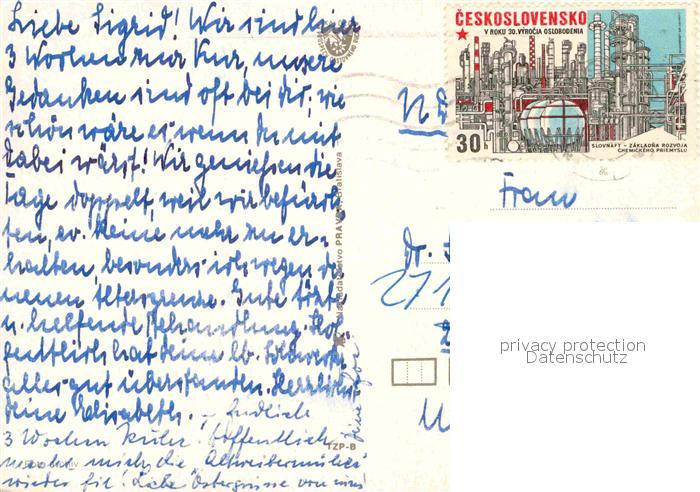 Liebe Sigrid! Wir sind hier
3 Wochen zur Kur, unsere
Gedanken sind oft bei dir, wie
schön wäre es wenn du mit
dabei wärst! Wir genießen die
Tage doppelt, weil wir befürch-
ten, ev. keine mehr zu er-
halten, besonders ich wegen der
neuen Altersgrenze. Gute Ärzte
u. helfende Behandlung. Hof-
fentlich hat deine lb. Schwester
alles gut überstanden. Herzlichst
deine Elisabeth. – Endlich
3 Wochen Ruhe. Hoffentlich
macht mich die "Altweibermühle"
wieder fit! Liebe Ostergrüsse von
ČESKOSLOVENSKO
V ROKU 30. VÝROČIA OSLOBODENIA
30
SLOVNAFT - ZÁKLADŇA ROZVOJA
CHEMICKÉHO PRIEMYSLU
Frau
Dr.
privacy protection
Datenschutz
TZP-B